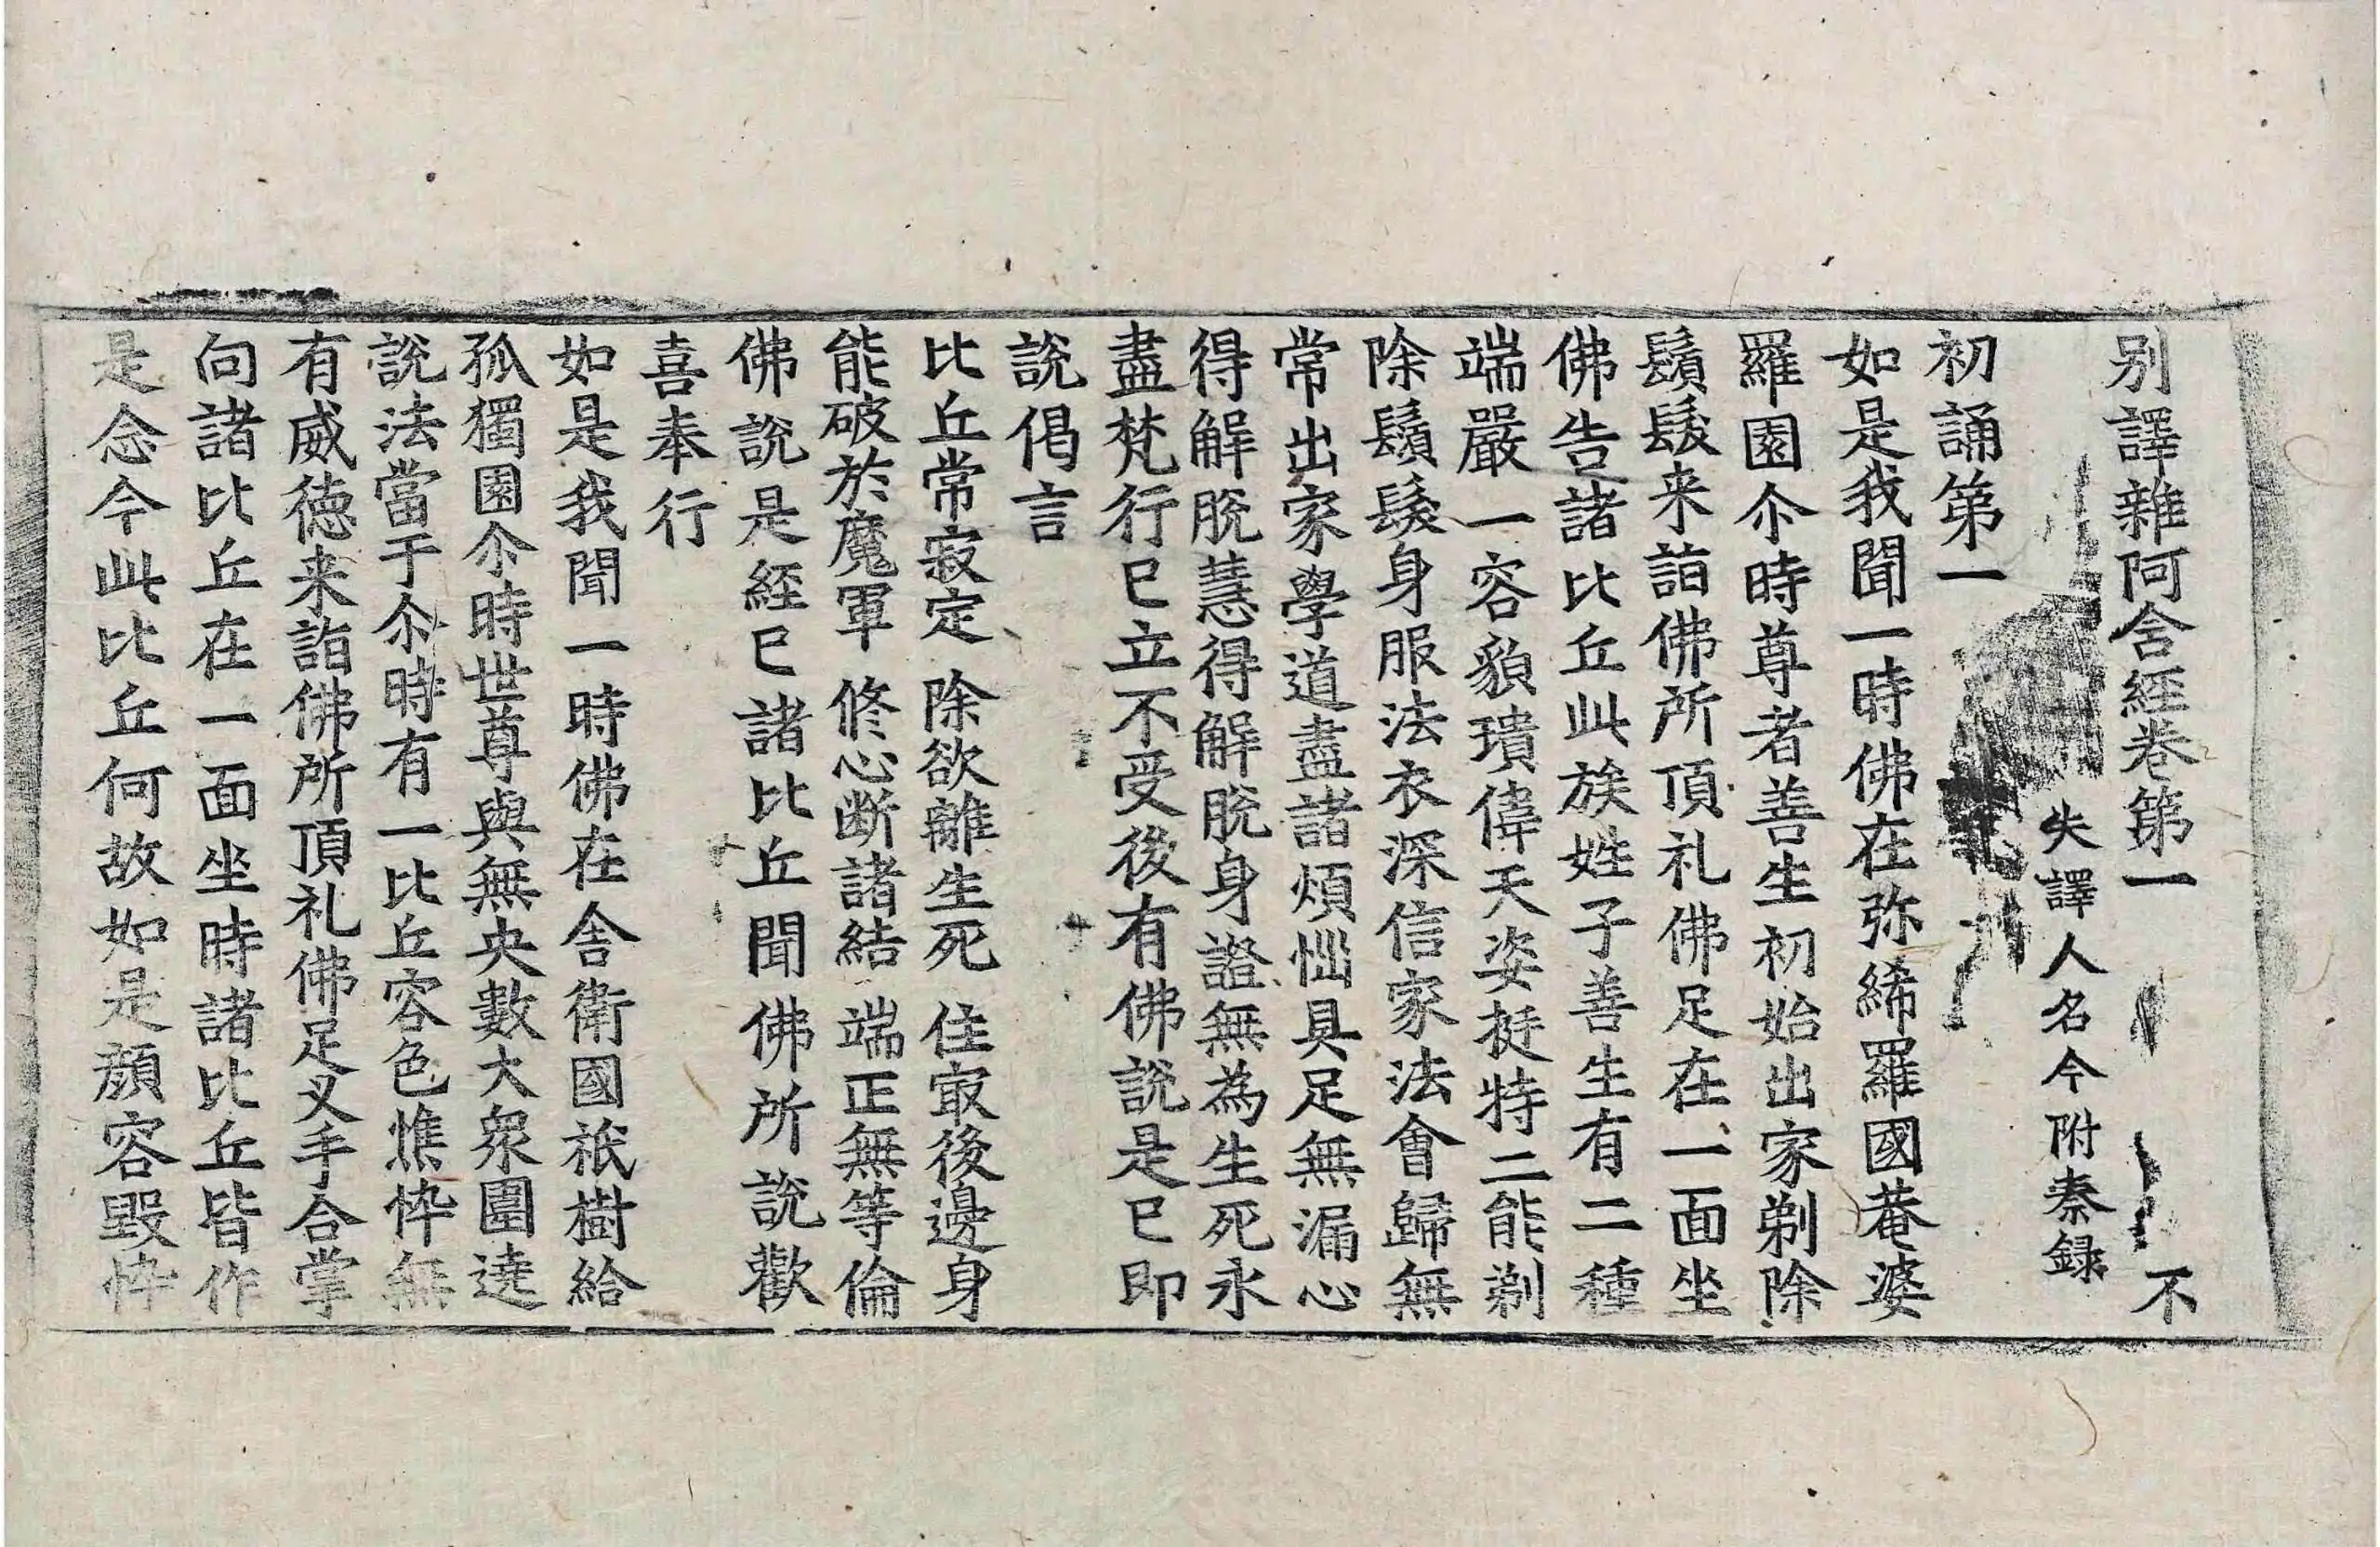 别譯雜阿含經卷第一 不
失譯人名今附秦録
初誦第一
如是我聞一時佛在弥絺羅國菴婆
羅園尒時尊者善生初始出家剃除
鬚髮来詣佛所頂礼佛足在一面坐
佛告諸比丘此族姓子善生有二種
端嚴一容貌瓌偉天姿挺特二能剃
除鬚髮身服法衣深信家法會歸無
常出家學道盡諸煩惱具足無漏心
得解脫慧得解脫身證無為生死永
盡梵行已立不受後有佛說是已即
說偈言
比丘常寂定 除欲離生死 住㝡後邊身
能破於魔軍 修心断諸結 端正無等倫
佛說是經已諸比丘聞佛所說歡
喜奉行
如是我聞一時佛在舍衛國祇樹給
孤獨園尒時世尊與無央數大衆圍遶
說法當于尒時有一比丘容色憔悴無
有威徳来詣佛所頂礼佛足叉手合掌
向諸比丘在一面坐時諸比丘皆作
是念今此比丘何故如是顔容毀悴